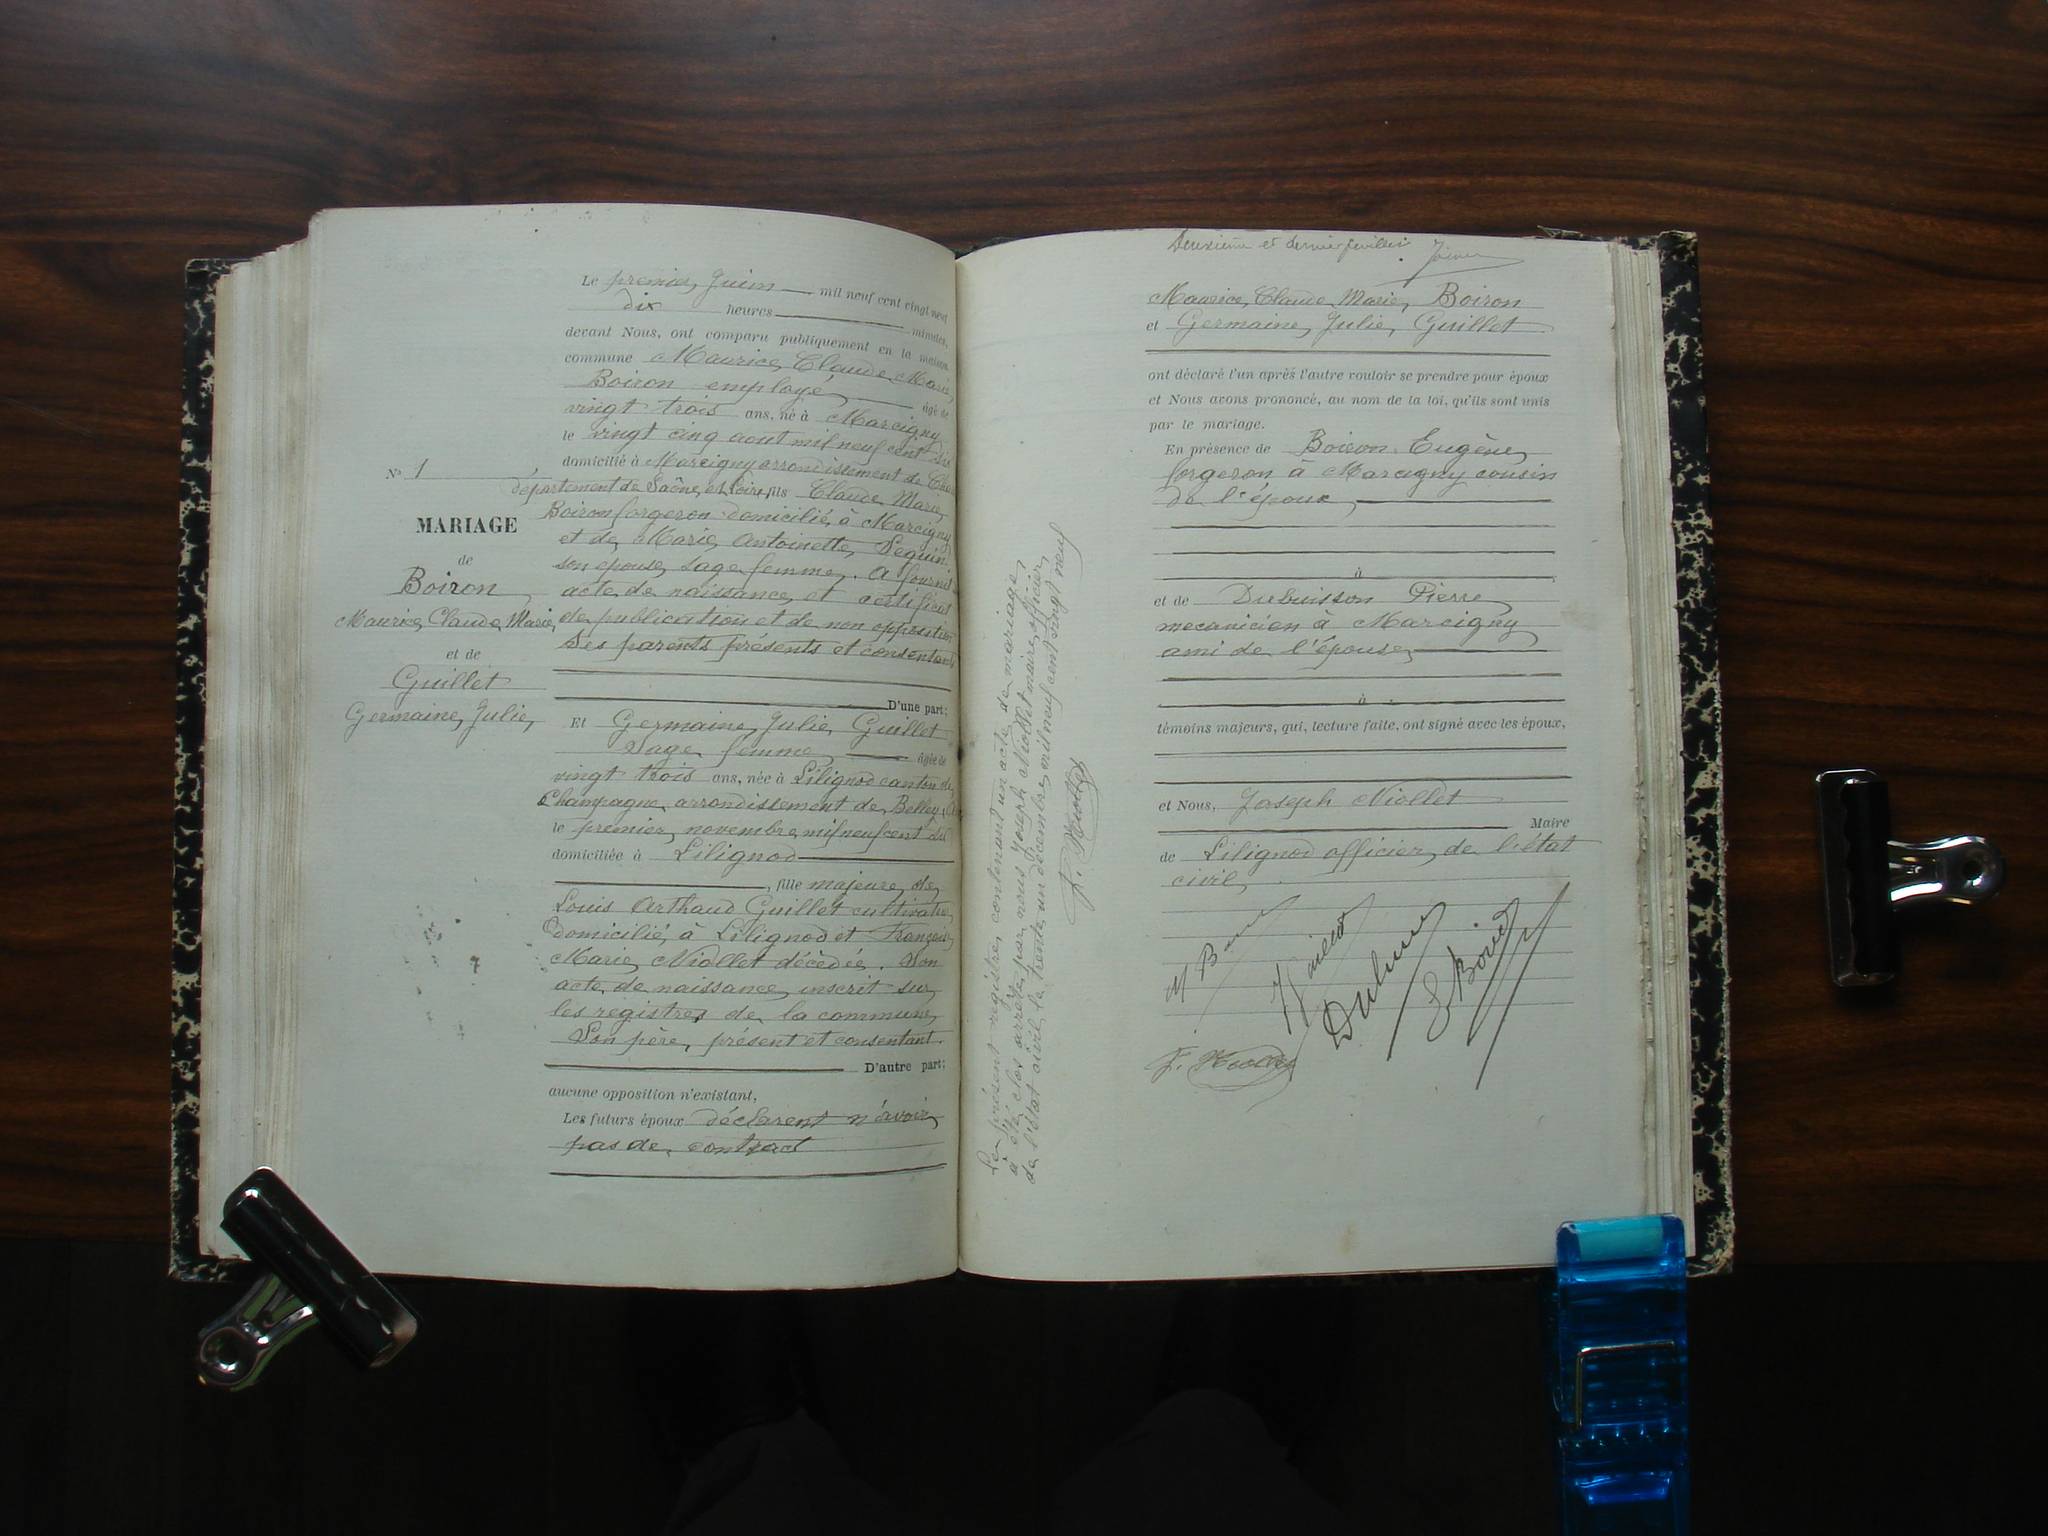 Le premier Juin mil neuf cent vingt neuf
dix heures minutes,
devant Nous, ont comparu publiquement en la maison
commune Maurice, Claude, Marie,
Boiron employé, âgé de
vingt trois ans, né à Marcigny
le vingt cinq aout mil neuf cent six
domicilié à Marcigny arrondissement de
département de Saône et Loire, fils Claude Marie
Boiron forgeron domicilié à Marcigny
et de Marie Antoinette Seguin
son épouse, sage femme. A fourni
acte de naissance et certificat
de publication et de non opposition
Ses parents présents et consentants
D'une part;
Et Germaine, Julie, Guillet
Sage femme âgée de
vingt trois ans, née à Lilignod canton de
Champagne, arrondissement de Belley,
le premier novembre mil neuf cent
domiciliée à Lilignod
, fille majeure de
Louis Arthaud Guillet cultivateur
domicilié à Lilignod et
Marie Niollet décédée. Son
acte de naissance inscrit sur
les registres de la commune
Son père, présent et consentant.
D'autre part;
aucune opposition n'existant,
Les futurs époux déclarent n'avoir
pas de contract
No 1
MARIAGE
de
Boiron
Maurice, Claude, Marie,
et de
Guillet
Germaine, Julie,
Deuxième et dernier feuillet
Maurice, Claude, Marie, Boiron
et Germaine, Julie, Guillet
ont déclaré l'un après l'autre vouloir se prendre pour époux
et Nous avons prononcé, au nom de la loi, qu'ils sont unis
par le mariage.
En présence de Boiron Eugène
forgeron à Marcigny cousin
de l'époux
à
et de Dubuisson Pierre
mecanicien à Marcigny
ami de l'épouse
à
témoins majeurs, qui, lecture faite, ont signé avec les époux,
et Nous, Joseph Niollet
Maire
de Lilignod officier de l'état
civil,
M Boiron
J. Niollet
E Boiron
Le présent registre, contenant un acte de mariage,
a été clos arrêté par nous Joseph Niollet maire, officier
de l'état civil le trente un décembre mil neuf cent vingt neuf
J. Niollet